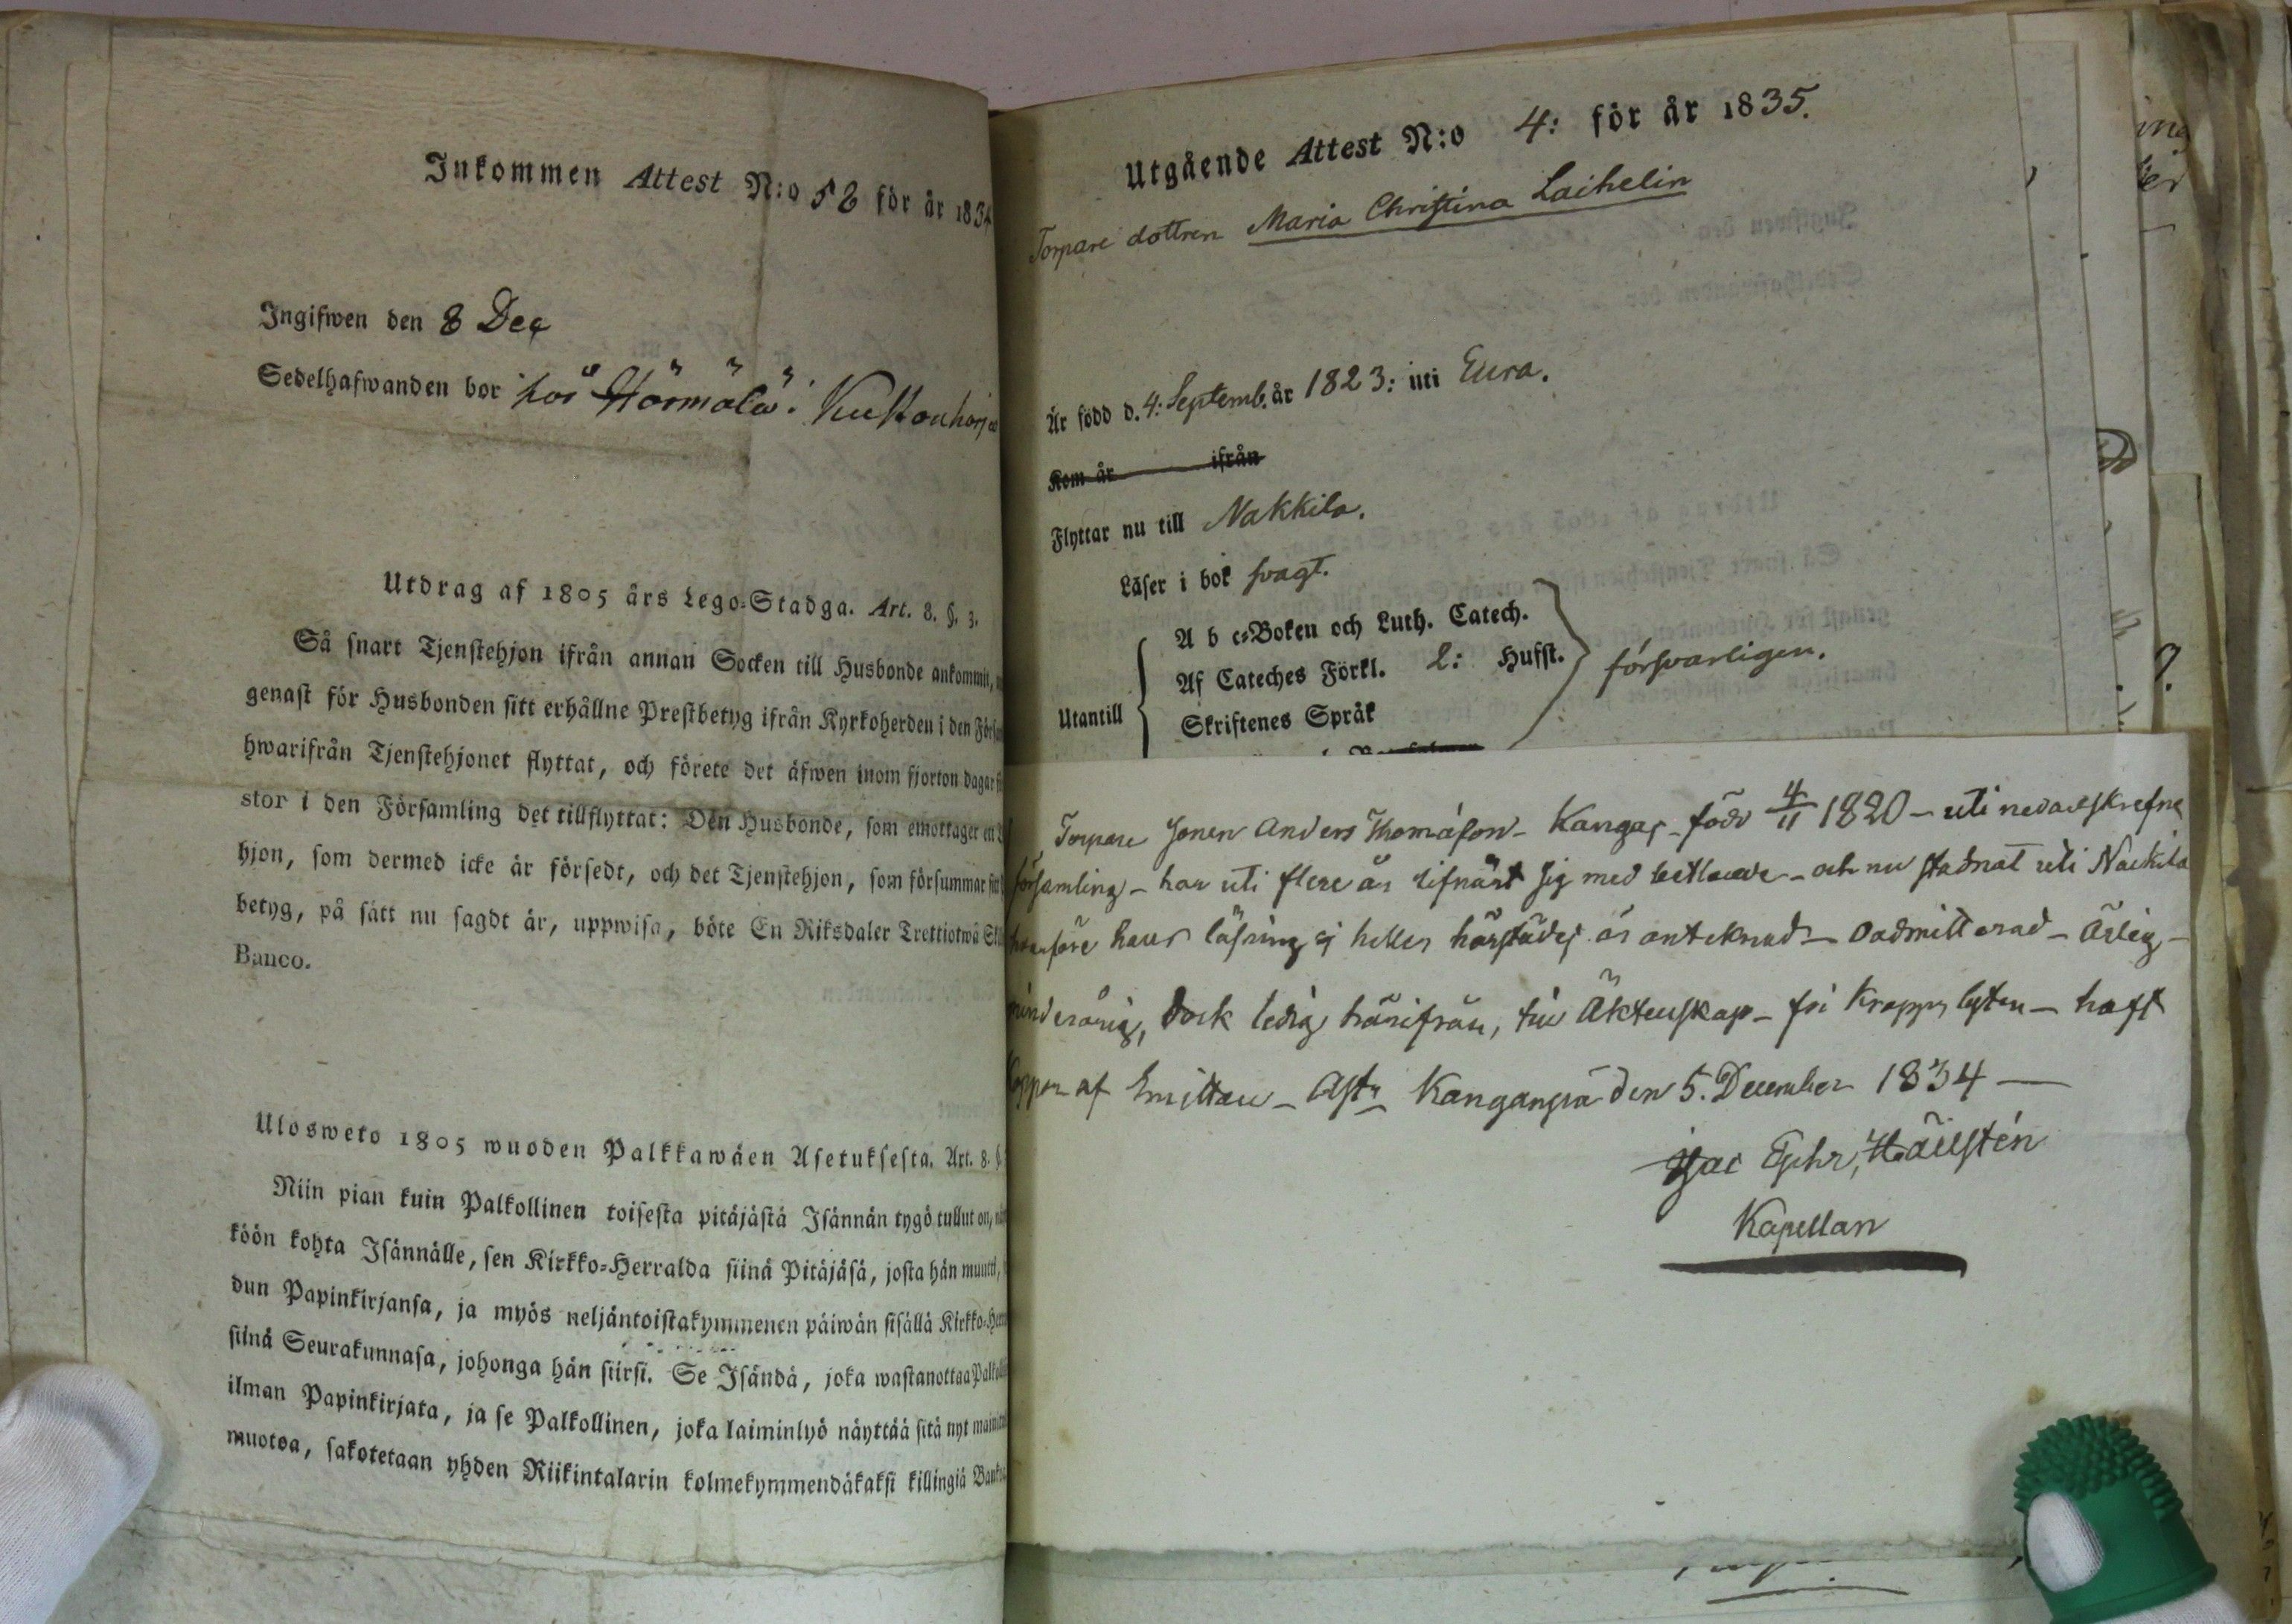 Inkommen Attest N:o 52 för år 1834
Ingifwen den 8 Dec
Sedelhafwanden bor hos
Utdrag af 1805 års Lego-Stadga. Art. 8. §. 3.
Så snart Tjenstehjon ifrån annan Socken till Husbonde ankommit,
genast för Husbonden sitt erhållne Prestbetyg ifrån Kyrkoherden i den
hwarifrån Tjenstehjonet flyttat, och förete det äfwen inom fjorton dagar
stor i den Församling det tillflyttat: Den Husbonde, som emottager en
hjon, som dermed icke är försedt, och det Tjenstehjon, som försummar
betyg, på sätt nu sagdt är, uppwisa, böte En Riksdaler Trettiotwå
Banco.
Ulosweto 1805 wuoden Palkkawäen Asetuksesta. Art. 8.
Niin pian kuin Palkollinen toisesta pitäjästä Isännän tygö tullut on,
köön kohta Isännälle, sen Kirkko-Herralda siinä Pitäjäsä, josta hän muutti,
dun Papinkirjansa, ja myös neljäntoistakymmenen päiwän sisällä
siinä Seurakunnasa, johonga hän siirsi. Se Isändä, joka wastanottaa
ilman Papinkirjata, ja se Palkollinen, joka laiminlyö näyttää sitä nyt
muotoa, sakotetaan yhden Riikintalarin kolmekymmendäkaksi killingiä
Utgående Attest N:o 4: för år 1835.
Torpare dottren Maria Christina Laihelin
Är född d. 4: Septemb. år 1823: uti Eura.
Kom år ifrån
Flyttar nu till Nakkila.
Läser i bok svagt.
A b c-Boken och Luth. Catech.
Af Cateches Förkl. 2: Hufst. försvarligen.
Utantill
Skriftenes Språk
Torpare Sonen Anders Thomasson Kangas - född 4/11 1820 - uti nedanskrefne
församling - har uti flere år lifnärt sig med - och nu stadnat uti Nackila
hans läsning ej heller härstädes är antecknad - oadmitterad - Ärlig -
dock ledig härifrån, till Äktenskap - fri Kropps lyten - haft
af Smittan - Kanganpää den 5. December 1834 -
Isac Ephr, Hällstén
Kapellan